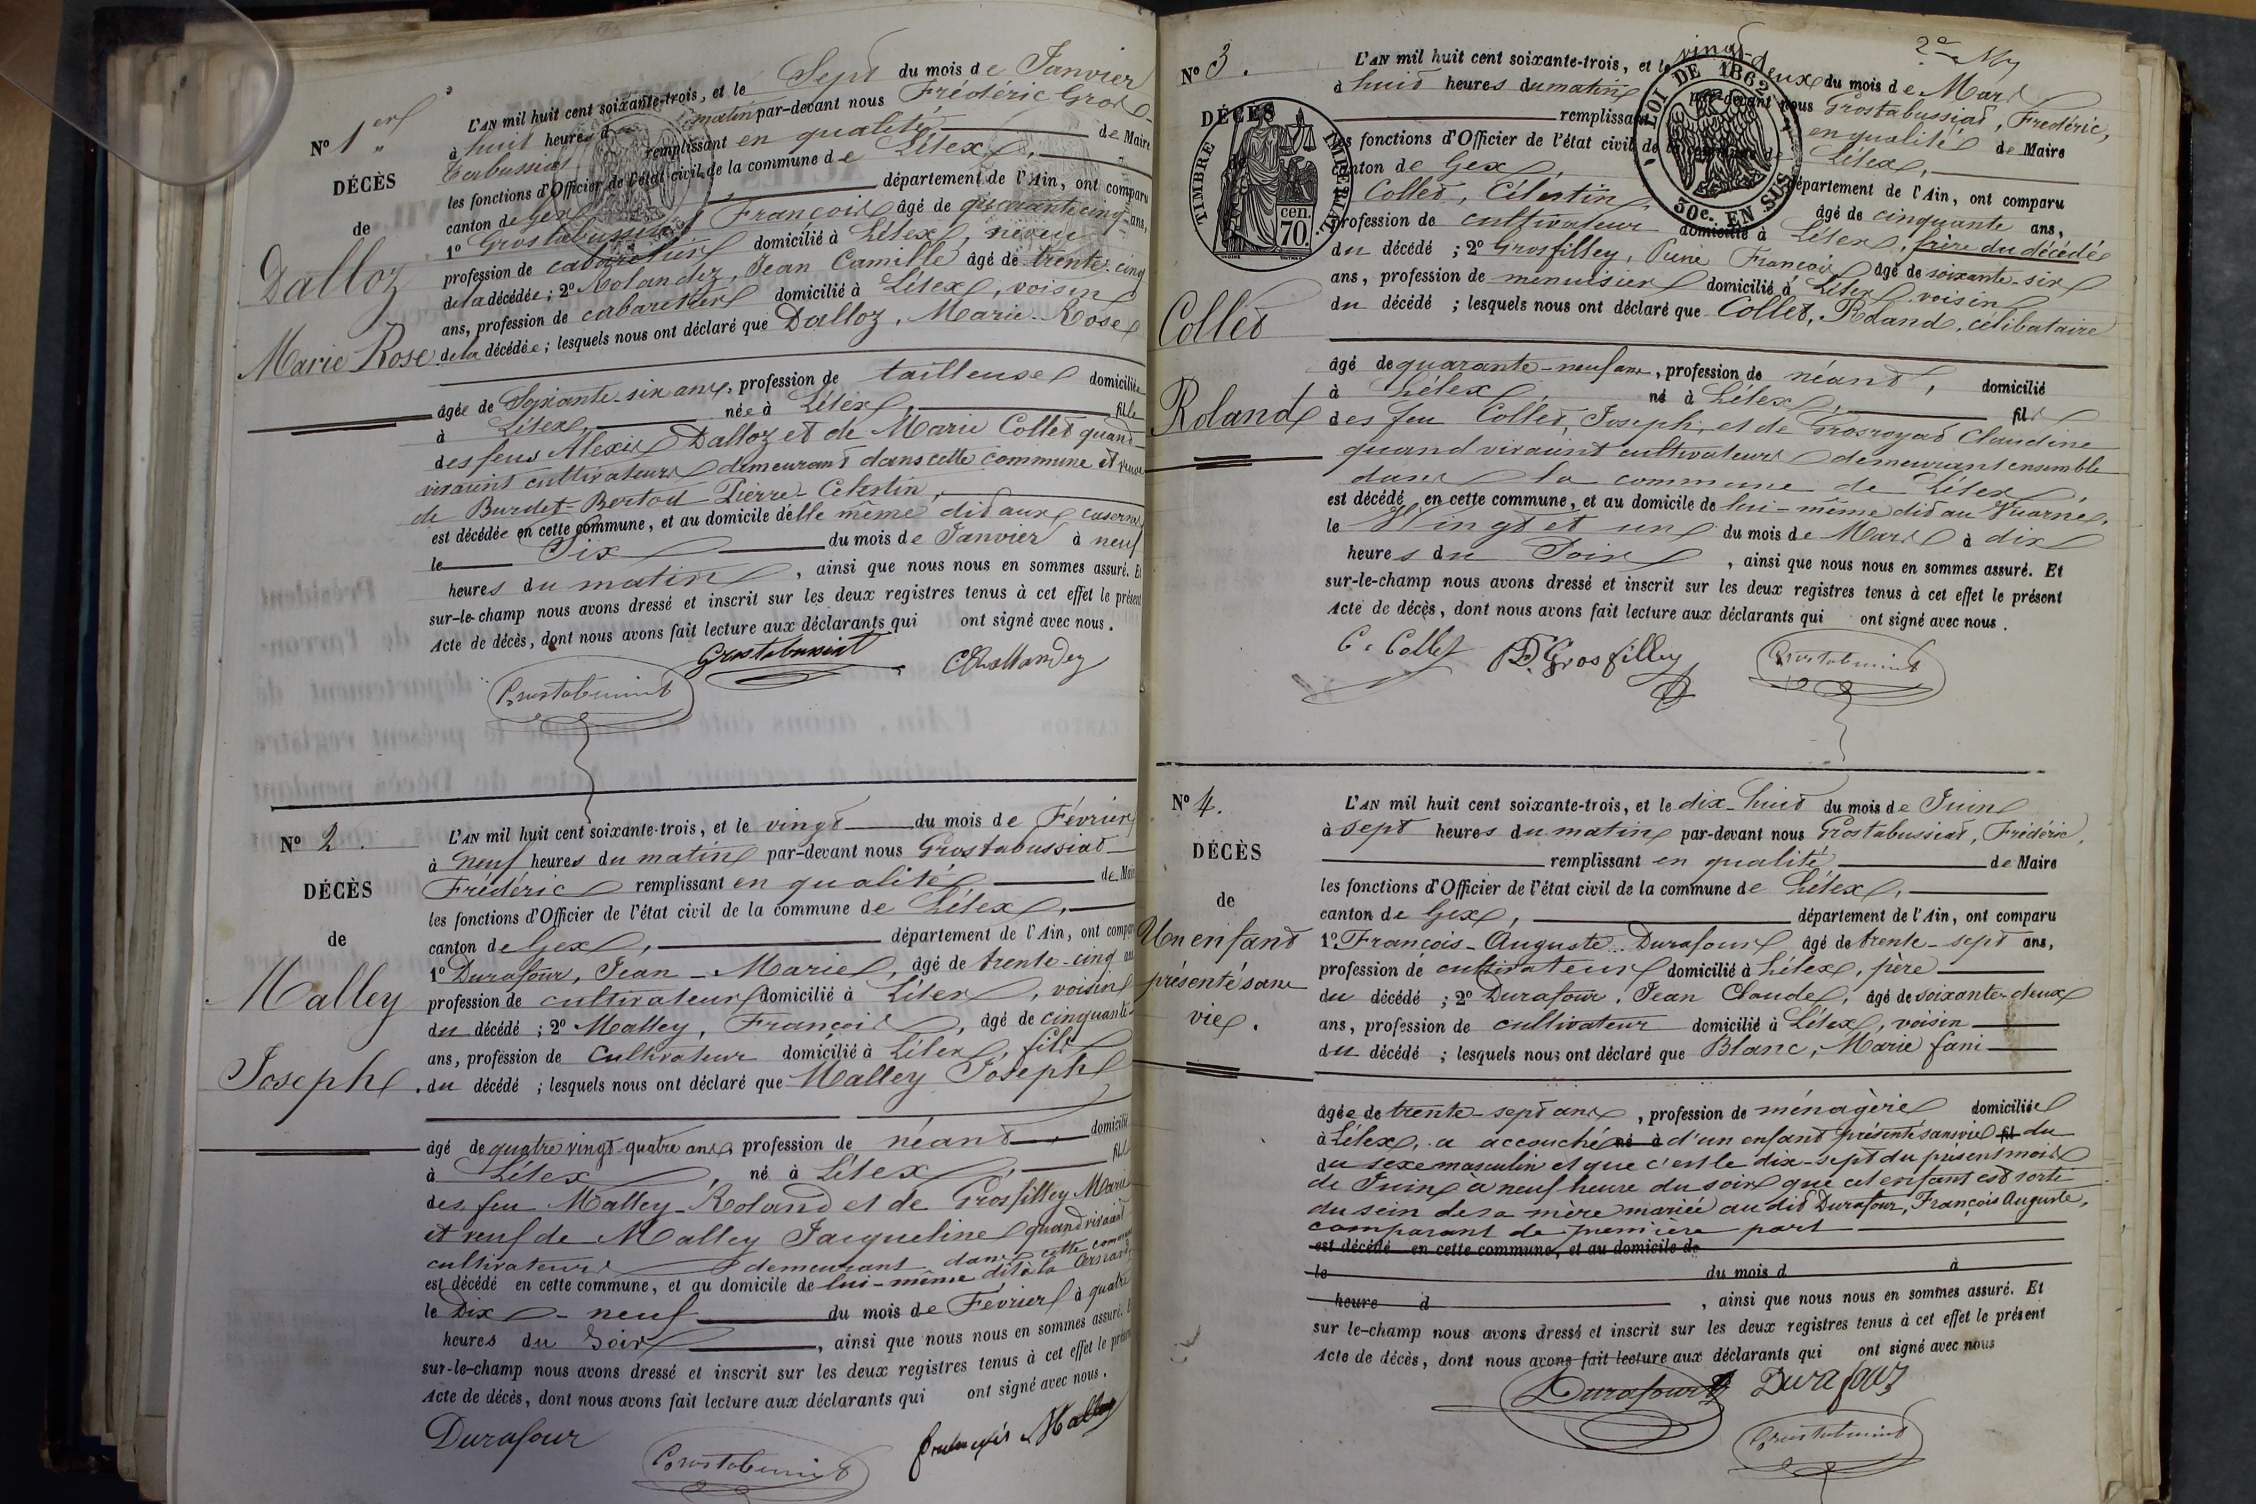 Nº 1er
DÉCÈS
de
Dalloz
Marie Rose
L'AN mil huit cent soixante-trois, et le Sept du mois de Janvier
à huit heures d matin par-devant nous Frédéric Gros
Tabussiat remplissant en qualité de Maire
les fonctions d'Officier de l'état civil de la commune de Lélex,
canton de Gex département de l'Ain, ont comparu
1º Grostabussiat François âgé de quarante cinq ans,
profession de cabaretier domicilié à Lélex, neveu
de la décédée; 2º Rolandez, Jean Camille âgé de trente-cinq
ans, profession de cabaretier domicilié à Lélex, voisin
de la décédée; lesquels nous ont déclaré que Dalloz, Marie-Rose
âgée de Soixante-six ans, profession de tailleuse domiciliée
à Lélex, née à Lélex, fille
des feus Alexis Dalloz et de Marie Collet quand
vivaient cultivateurs demeurant dans cette commune et veuve
de Burdet-Bertod Pierre-Celestin,
est décédée en cette commune, et au domicile d'elle même dit aux casernes
le Six du mois de Janvier à neuf
heures du matin, ainsi que nous nous en sommes assuré. Et
sur-le-champ nous avons dressé et inscrit sur les deux registres tenus à cet effet le présent
Acte de décès, dont nous avons fait lecture aux déclarants qui ont signé avec nous.
Grostabussiat C Rollandez
Grostabussiat
Nº 2.
DÉCÈS
de
Malley
Joseph.
L'AN mil huit cent soixante-trois, et le vingt du mois de Février
à neuf heures du matin par-devant nous Grostabussiat
Frédéric remplissant en qualité de Maire
les fonctions d'Officier de l'état civil de la commune de Lélex,
canton de Gex, département de l'Ain, ont comparu
1º Durafour, Jean-Marie, âgé de trente-cinq ans
profession de cultivateur domicilié à Lélex, voisin
du décédé; 2º Malley, François, âgé de cinquante
ans, profession de Cultivateur domicilié à Lélex, fils
du décédé; lesquels nous ont déclaré que Malley Joseph
âgé de quatre vingt-quatre ans, profession de néant, domicilié
à Lélex, né à Lélex, fils
des feu Malley Roland et de Grosfilley Marie
et veuf de Malley Jacqueline quand vivaient
cultivateurs demeurant dans cette commune
est décédé en cette commune, et au domicile de lui-même dit à la
le Dix-neuf du mois de Février à quatre
heures du Soir, ainsi que nous nous en sommes assuré. Et
sur-le-champ nous avons dressé et inscrit sur les deux registres tenus à cet effet le présent
Acte de décès, dont nous avons fait lecture aux déclarants qui ont signé avec nous.
Durafour Grostabussiat François Malley
Nº 3.
DÉCÈS
de
Collet
Roland
TIMBRE IMPÉRIAL
cen. 70.
LOI DE 1862
50c. EN SUS
L'AN mil huit cent soixante-trois, et le vingt-deux du mois de Mars
à huit heures du matin par-devant nous Grostabussiat, Frédéric,
remplissant en qualité de Maire
les fonctions d'Officier de l'état civil de la commune de Lélex,
canton de Gex, département de l'Ain, ont comparu
Collet, Célestin, âgé de cinquante ans,
profession de cultivateur domicilié à Lélex, frère du décédé
du décédé; 2º Grosfilley, Pierre François âgé de soixante-six
ans, profession de menuisier domicilié à Lélex voisin
du décédé; lesquels nous ont déclaré que Collet, Roland, célibataire
âgé de quarante-neuf ans, profession de néant, domicilié
à Lélex, né à Lélex, fils
des feu Collet, Joseph, et de Grosroyat Claudine
quand vivaient cultivateurs demeurant ensemble
dans la commune de Lélex,
est décédé en cette commune, et au domicile de lui-même dit au
le Vingt et un du mois de Mars à dix
heures du Soir, ainsi que nous nous en sommes assuré. Et
sur-le-champ nous avons dressé et inscrit sur les deux registres tenus à cet effet le présent
Acte de décès, dont nous avons fait lecture aux déclarants qui ont signé avec nous.
C. Collet Grosfilley Grostabussiat
Nº 4.
DÉCÈS
de
Un enfant
présenté sans
vie.
L'AN mil huit cent soixante-trois, et le dix-huit du mois de Juin
à sept heures du matin par-devant nous Grostabussiat, Frédéric,
remplissant en qualité de Maire
les fonctions d'Officier de l'état civil de la commune de Lélex,
canton de Gex, département de l'Ain, ont comparu
1º François-Auguste Durafour âgé de trente-sept ans,
profession de cultivateur domicilié à Lélex, père
du décédé; 2º Durafour, Jean Claude, âgé de soixante-deux
ans, profession de cultivateur domicilié à Lélex, voisin
du décédé; lesquels nous ont déclaré que Blanc, Marie fani
âgée de trente-sept ans, profession de ménagère domiciliée
à Lélex, a accouché né à d'un enfant présenté sans vie fil du
du sexe masculin et que c'est le dix-sept du présent mois
de Juin à neuf heure du soir que cet enfant est sorti
du sein de sa mère mariée au dit Durafour, François Auguste,
comparant de première part
est décédé en cette commune, et au domicile de
le du mois d à
heure d, ainsi que nous nous en sommes assuré. Et
sur le-champ nous avons dressé et inscrit sur les deux registres tenus à cet effet le présent
Acte de décès, dont nous avons fait lecture aux déclarants qui ont signé avec nous
Durafour Durafour
Grostabussiat